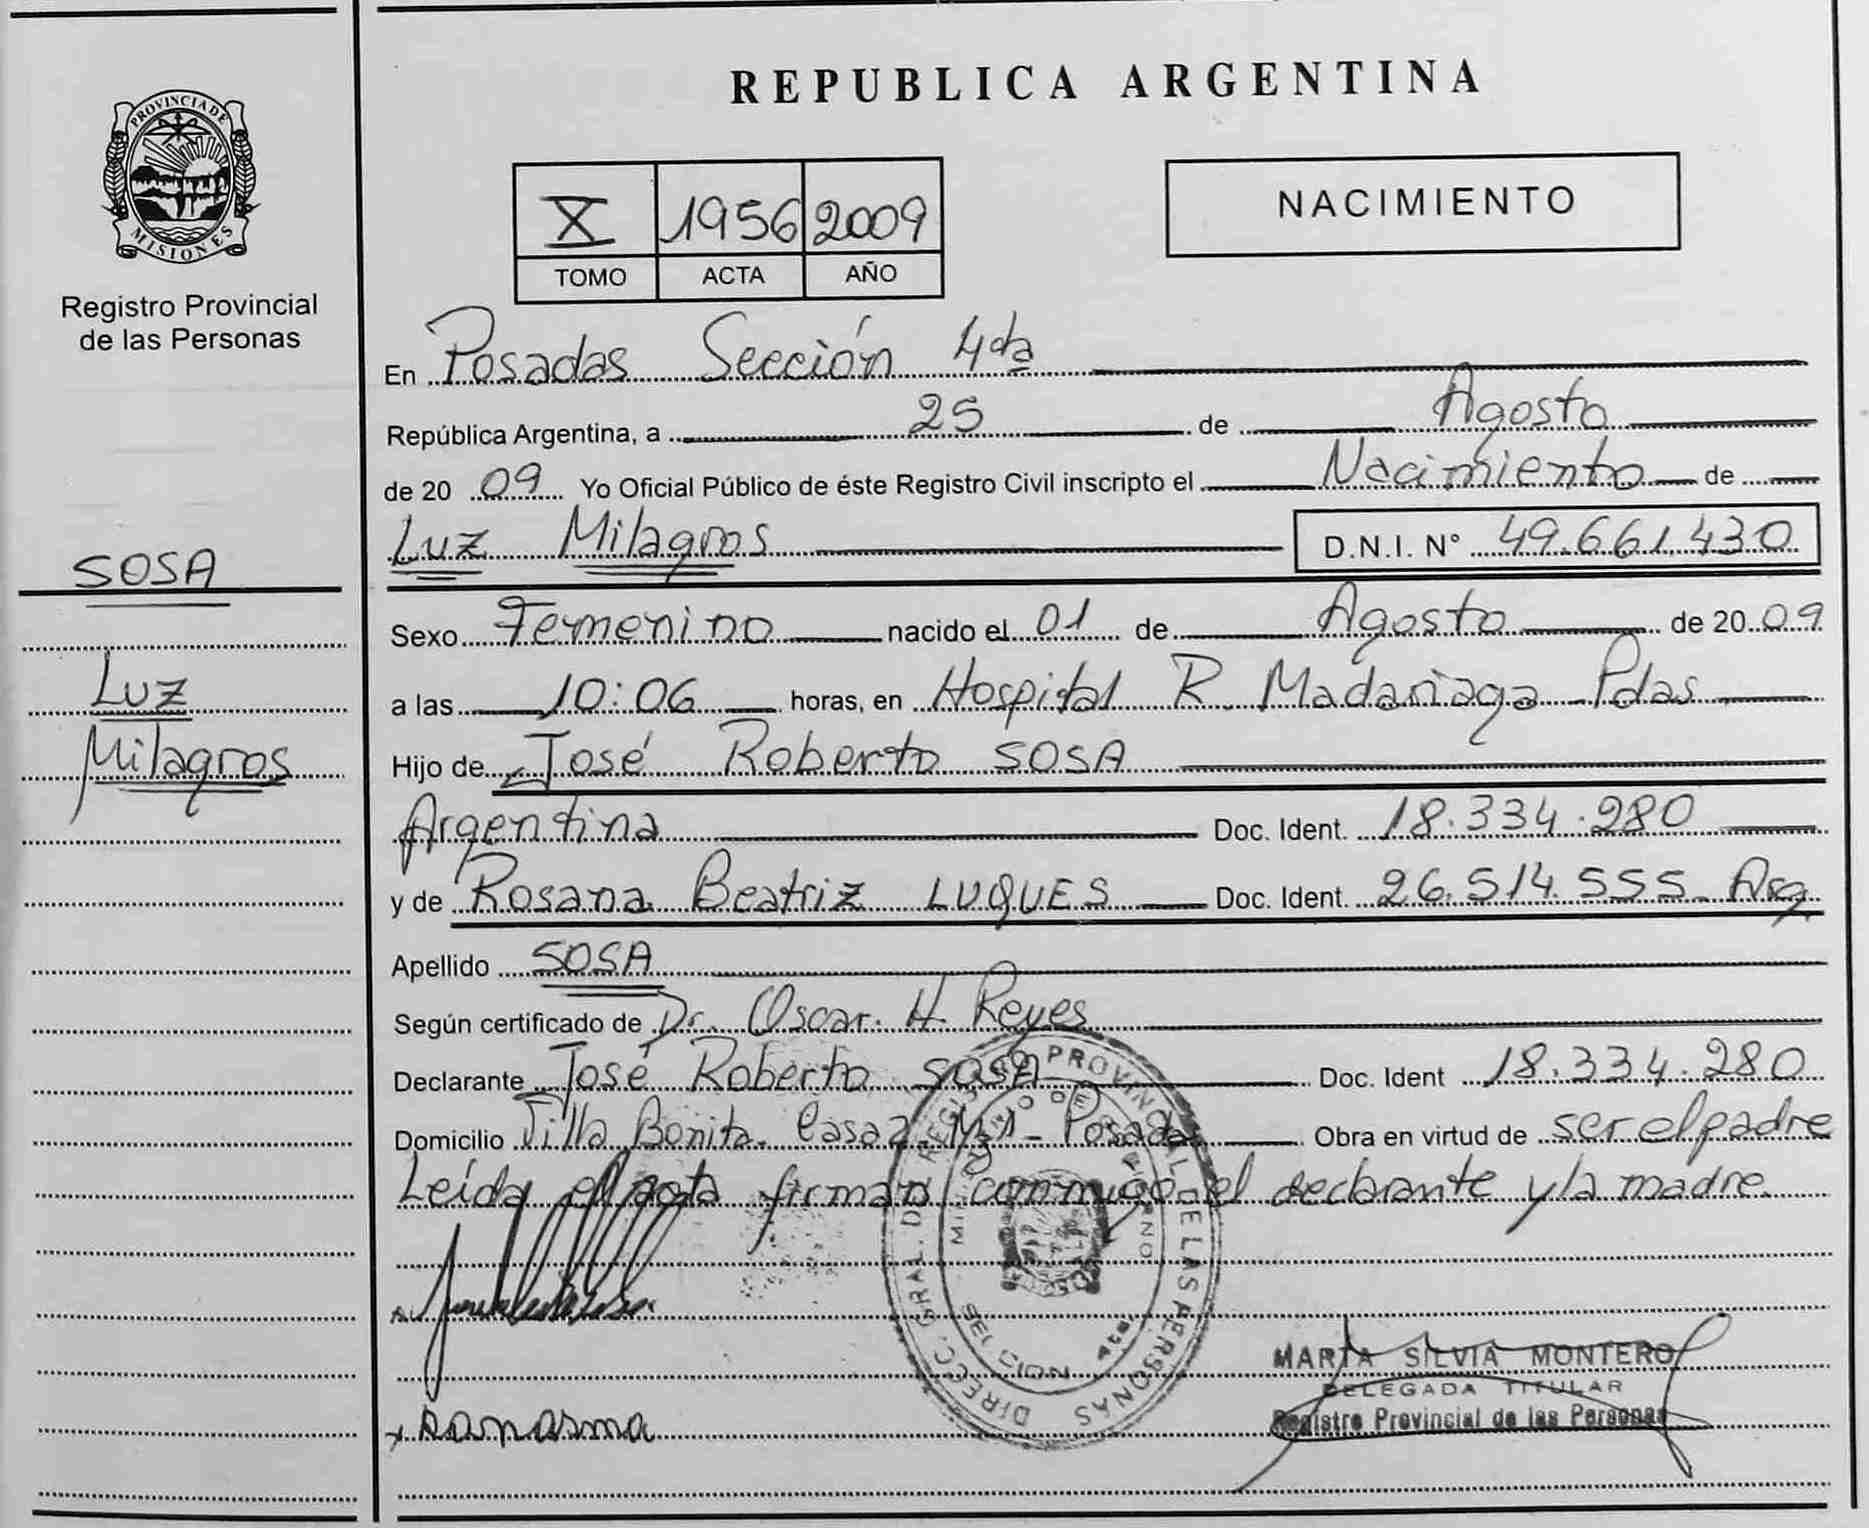 PROVINCIA DE
MISIONES
Registro Provincial
de las Personas
SOSA
Luz
Milagros
REPUBLICA ARGENTINA
X 1956 2009
TOMO ACTA AÑO
NACIMIENTO
En Posadas Sección 4da
República Argentina, a 25 de Agosto
de 20 09 Yo Oficial Público de éste Registro Civil inscripto el Nacimiento de
Luz Milagros D.N.I. N° 49.661.430
Sexo Femenino nacido el 01 de Agosto de 20 09
a las 10:06 horas, en Hospital R. Madariaga Pdas.
Hijo de José Roberto SOSA
Argentina Doc. Ident. 18.334.280
y de Rosana Beatriz LUQUES Doc. Ident. 26.514.555 Arg
Apellido SOSA
Según certificado de Dr. Oscar. H. Reyes
Declarante José Roberto SOSA Doc. Ident 18.334.280
Domicilio Villa Bonita. Casa 2 Posadas Obra en virtud de ser el padre
Leída el acta firman conmigo el declarante y la madre.
DIRECC. GRAL. DE REGISTRO PROVINCIAL DE LAS PERSONAS
MARTA SILVIA MONTERO
DELEGADA TITULAR
Registro Provincial de las Personas